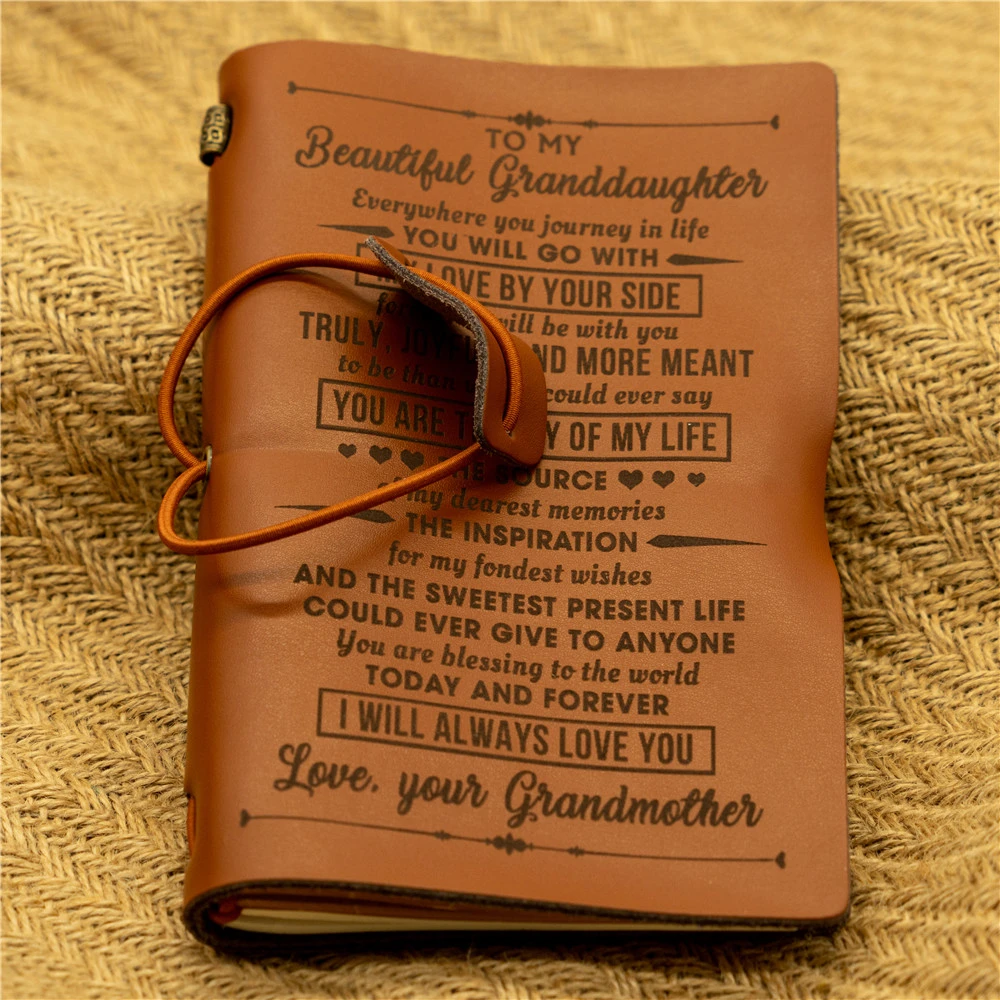 TO MY
Beautiful Granddaughter
Everywhere you journey in life
YOU WILL GO WITH
LOVE BY YOUR SIDE
will be with you
TRULY, AND MORE MEANT
to be than could ever say
YOU ARE OF MY LIFE
THE SOURCE
of my dearest memories
THE INSPIRATION
for my fondest wishes
AND THE SWEETEST PRESENT LIFE
COULD EVER GIVE TO ANYONE
You are blessing to the world
TODAY AND FOREVER
I WILL ALWAYS LOVE YOU
Love, your Grandmother